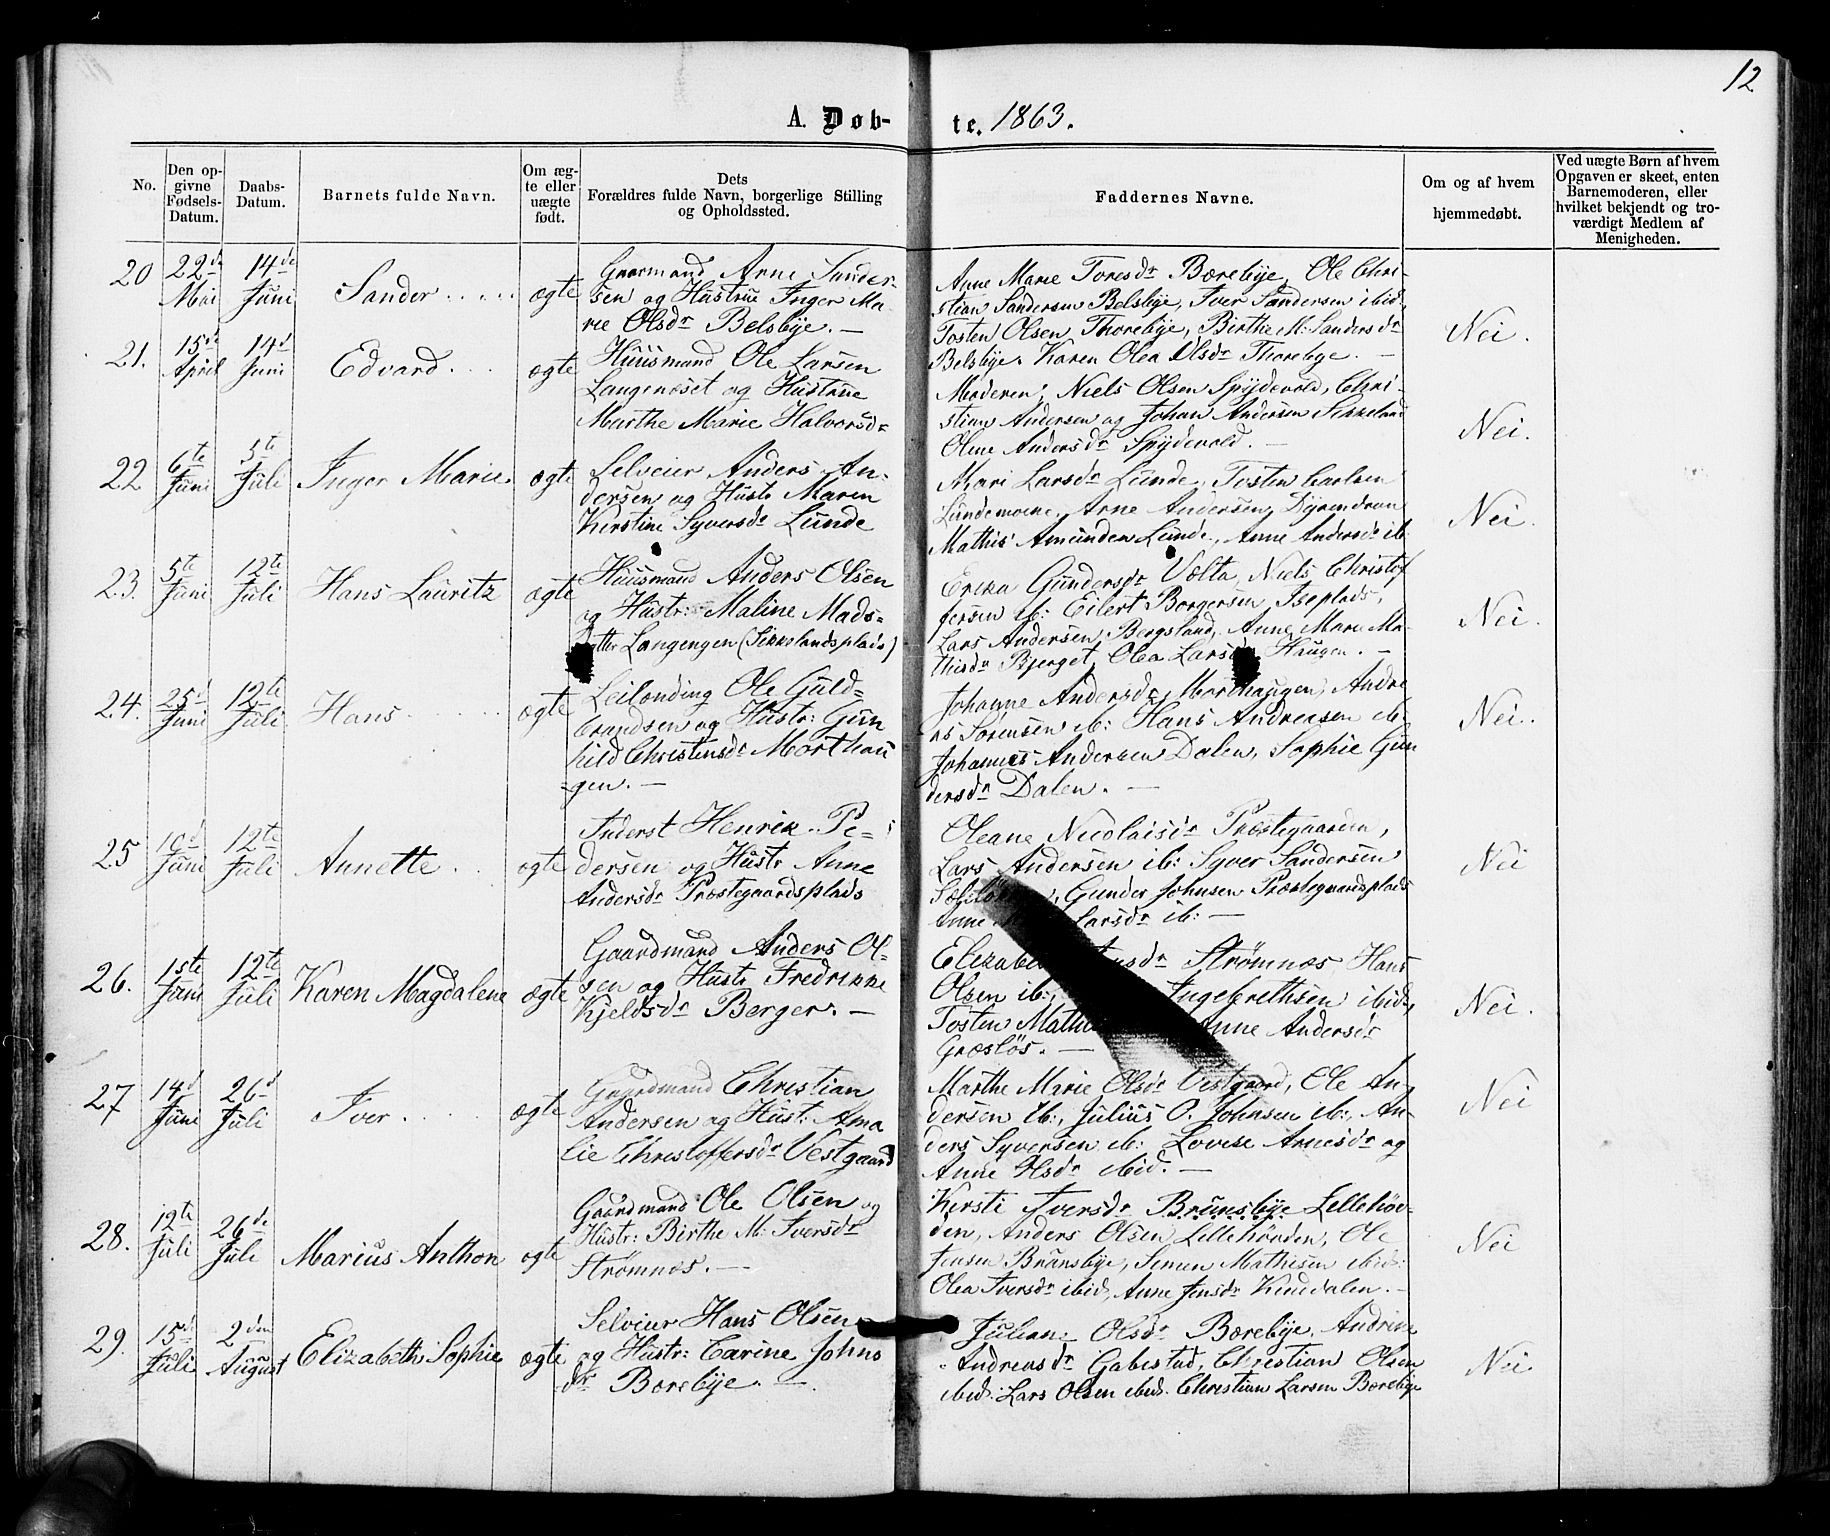 12
A. Døb- te. 1863.
No.
Den opgivne Fødsels-Datum.
Daabs-Datum.
Barnets fulde Navn.
Om ægte eller uægte født.
Dets Forældres fulde Navn, borgerlige Stilling og Opholdssted.
Faddernes Navne.
Om og af hvem hjemmedøbt.
Ved uægte Børn af hvem Opgaven er skeet, enten Barnemoderen, eller hvilket bekjendt og troværdigt Medlem af Menigheden.
20 22de Mai 14de Juni Sander ægte
Gaarmand Arne Sander-
sen og Hustrue Inger Ma-
rie Olsdr Belsbye. —
Anne Marie Toresdr Bærebye, Ole Chri-
stian Sandersen Belsbye, Iver Sandersen ibid,
Tosten Olsen Thorebye, Birthe M: Sandersdr
Belsbye. Karen Olea Olsdr Thorebye. —
Nei.
21. 15de April 14d Juni Edvard ægte
Huusmand Ole Larsen
Langenæset og Hustrue
Marthe Marie Halvorsd=
Moderen, Niels Olsen Spydevold, Chri-
stian Andersen og Johan Andersen Sikkeland
Oline Andersdr Spydevold. —
Nei.
22 6te Juni 5te Juli Inger Marie ægte
Selveier Anders An-
dersen og Hustr Maren
Kirstine Syversdr Lunde
Mari Larsdr Lunde, Tosten Carlsen
Lundemoene, Arne Andersen,
Mathis Amundsen Lunde, Anne Andersdr ib
Nei.
23. 5te Juni 12te Juli Hans Lauritz ægte
Huusmand Anders Olsen
og Hustr: Maline Mads=
datter Langengen (Sikkelandsplads)
Erika Gundersdr Vælta, Niels Christof
fersen ib: Eilert Borgersen,
Lars Andersen Bergsland, Anne Marie Ma-
thisdr Bjerget, Olea Larsdr Haugen. —
Nei.
24. 25d Juni 12te Juli Hans ægte
Leilænding Ole Guld=
brandsen og Hustr: Gun
hild Christensdr Morthau
gen. —
Johanne Andersdr Morthaugen, Andre
as Sørensen ib: Hans Andreasen ib:
Johannes Andersen Dalen, Sophie Gun
dersdr Dalen. —
Nei.
25 10d Juni 12te Juli Annette ægte
Inderst Henrik Pe-
dersen og Hustr Anne
Andersdr Præstegaardsplads
Oleane Nicolaisdr Præstegaarden,
Lars Andersen ib: Syver Sandersen
Gunder Johnsen Præstegaardsplads
Anne Larsdr ib: —
Nei
26. 1ste Juni 12te Juli Karen Magdalene ægte
Gaardmand Anders Ol-
sen og Hustr Fredrikke
Kjeldsdr Berger. —
Strømnæs, Hans
Olsen ib:, Ingebrethsen ibid,
Tosten Anne Andersdr
Græsløs. —
Nei.
27 14d Juni 26d Juli Iver ægte
Gaardmand Christian
Andersen og Hust: Ama
lie Christoffersdr Vestgaard
Marthe Marie Olsdr Vestgaard, Ole An-
dersen ib:, Julius O. Johnsen ib:, An-
ders Syversen ib: Lovise Arnesdr og
Anne Olsdr ibid. —
Nei
28. 12te Juli 26de Juli Marius Anthon ægte
Gaardmand Ole Olsen og
Hustr: Birthe M: Iversdr
Strømnæs. —
Kirsti Iversdr Brunsbye Lillehøv-
den, Anders Olsen Lillehövden, Ole
Jensen Brunsbye, Simen Mathisen ibid:
Olea Iversdr ibid, Anne Jensdr Kinndalen. —
Nei
29. 15d Juli 2den August Elizabeth Sophie ægte
Selveier Hans Olsen
og Hustr: Carine Johns
dr Bærebye. —
Juliane Olsdr Bærebye, Andrine
Andreasdr Gabestad, Christian Olsen
ibid: Lars Olsen ibid. Christian Larsen Bærebye
Nei